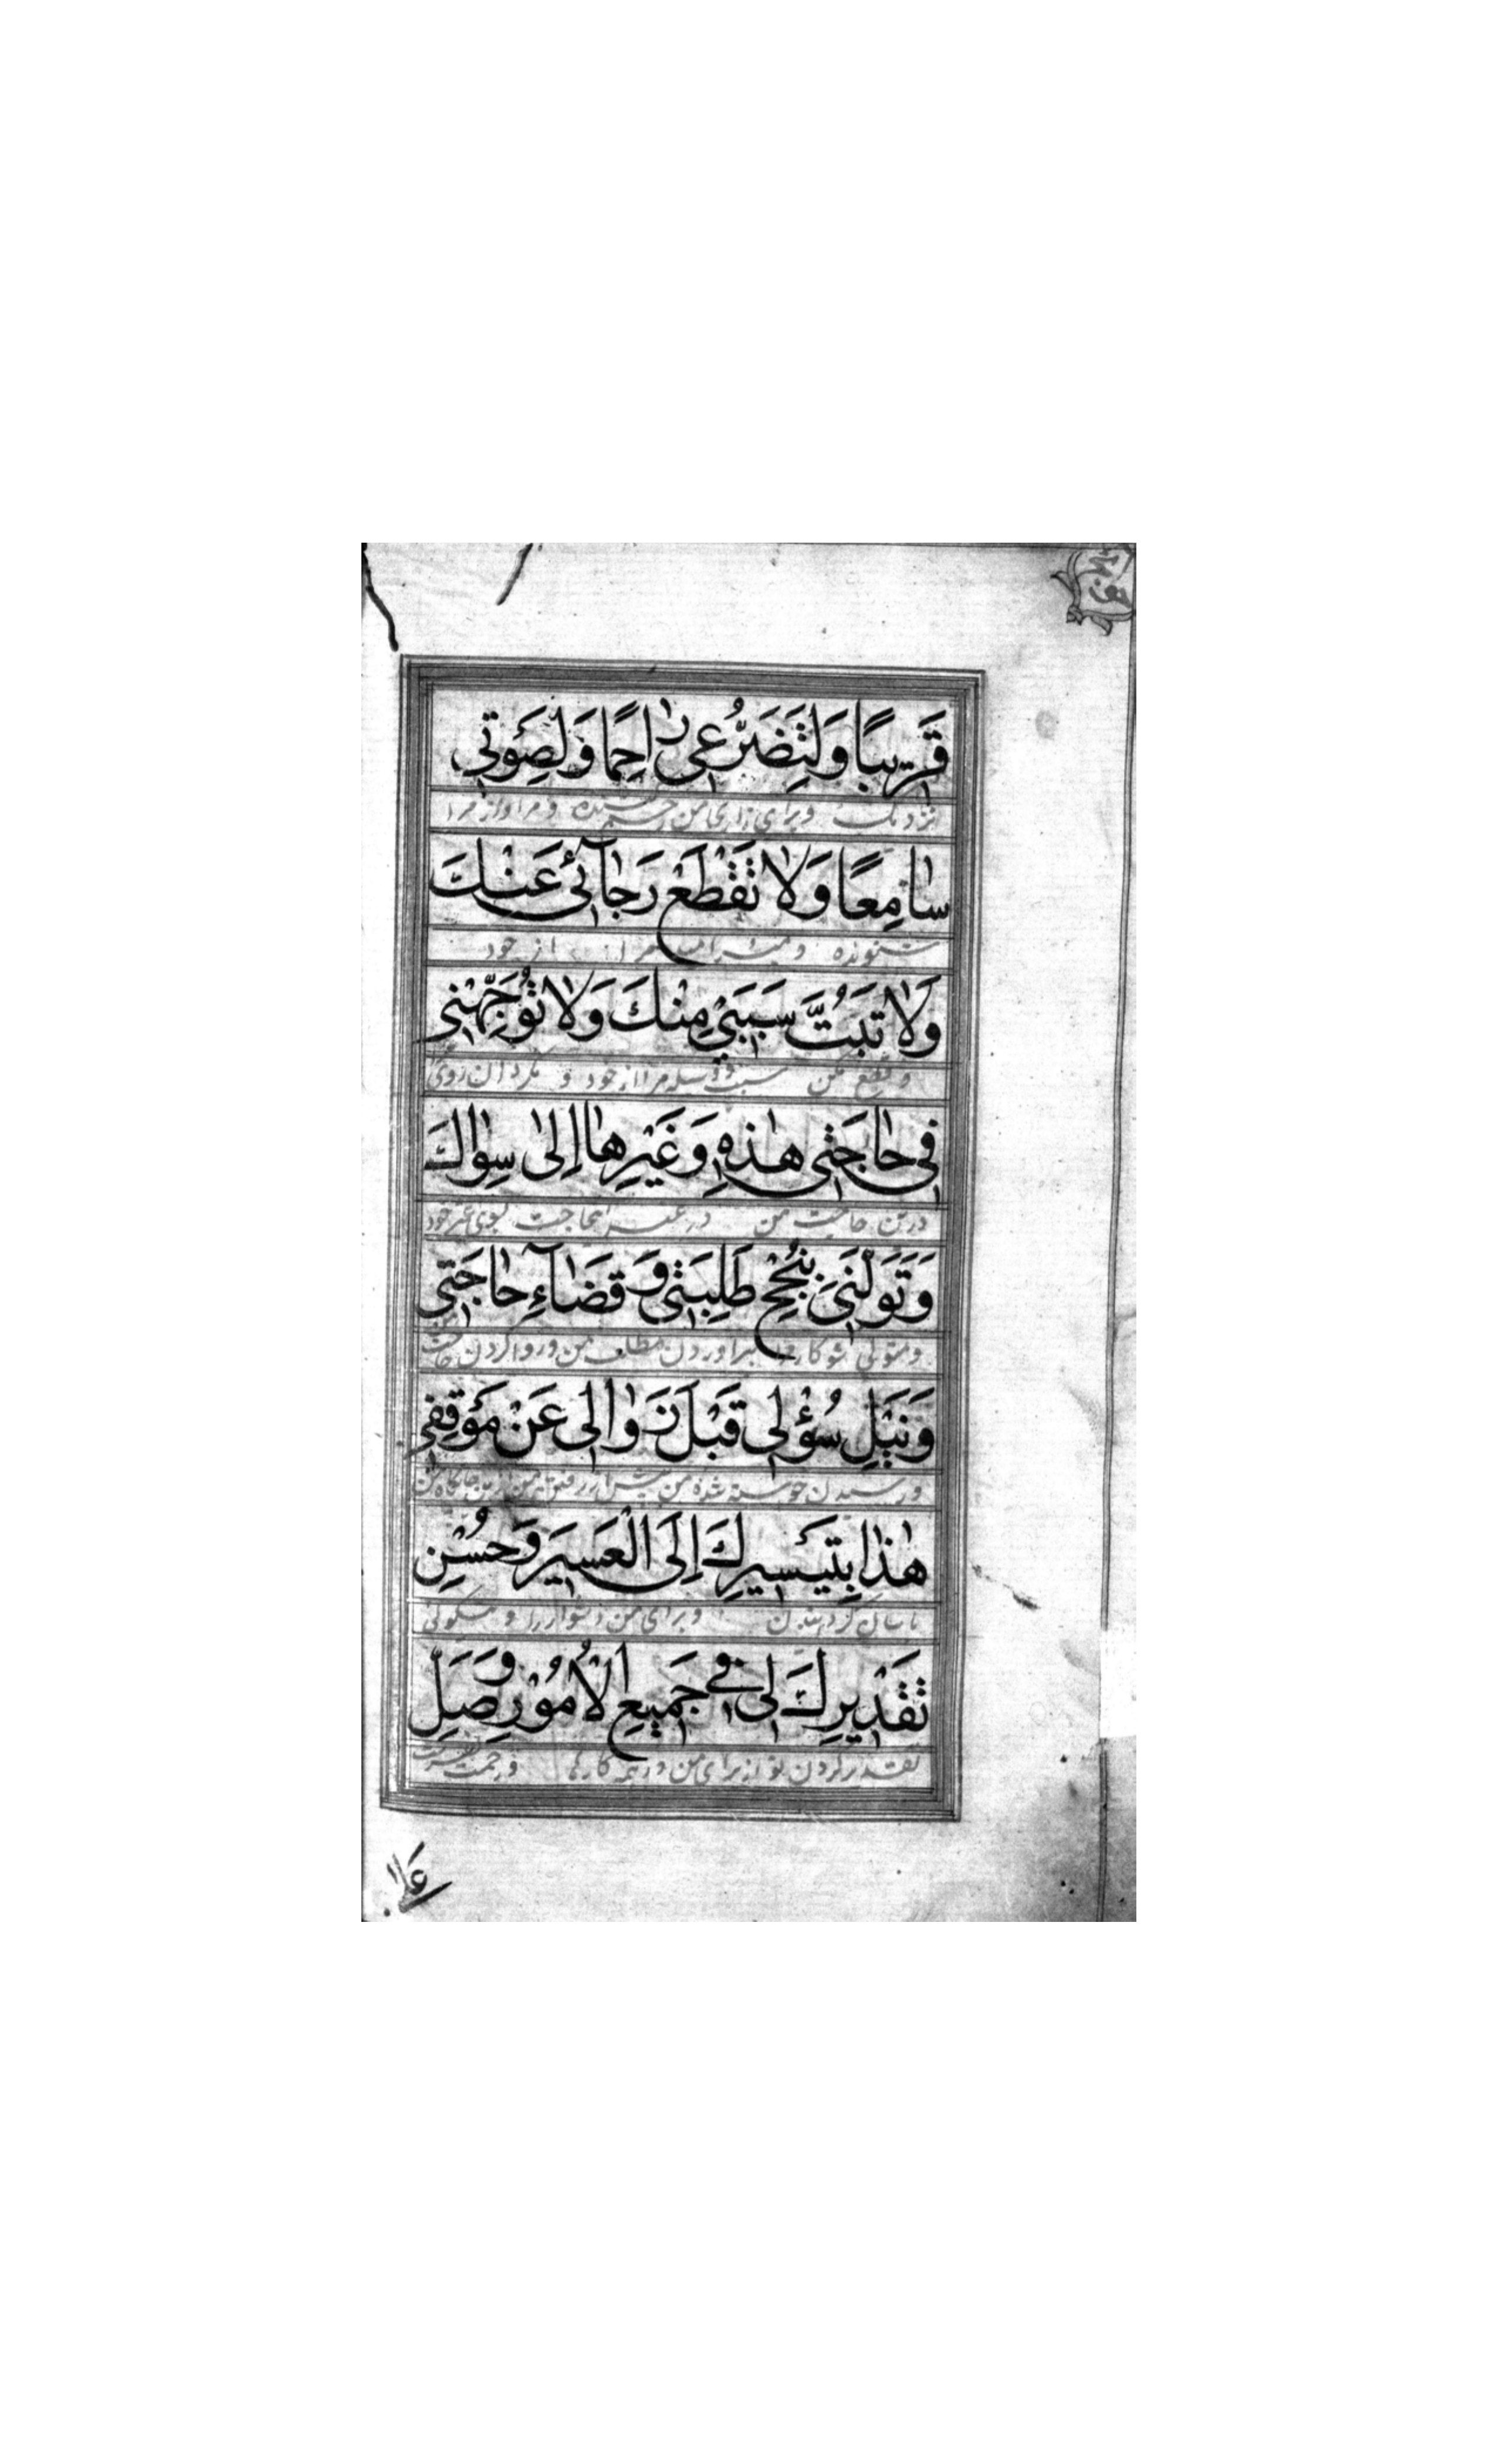 قَرِيبًا وَلِتَضَرُّعِي رَاحِمًا وَلِصَوْتِي
نزدیک و برای زاری من رحم کننده و مر اواز مرا
سَامِعًا وَلَا تَقْطَعْ رَجَائِي عَنْكَ
شنونده و مرا از خود
وَلَا تَبُتَّ سَبَبِي مِنْكَ وَلَا تُوَجِّهْنِي
و قطع مکن سبب و وسیله مرا از خود و مگردان روی
فِي حَاجَتِي هٰذِهِ وَغَيْرِهَا إِلَى سِوَاكَ
درین حاجت من در غیر اینحاجت بسوی غیر خود
وَتَوَلَّنِي بِنُجْحِ طَلِبَتِي وَقَضَاءِ حَاجَتِي
و متولی شو کار براوردن مطلب من و روا کردن حاجت
وَنَيْلِ سُؤْلِي قَبْلَ زَوَالِي عَنْ مَوْقِفِي
و رسیدن خواسته شده من پیش از رفتن من ازین جایگاه من
هٰذَا بِتَيْسِيرِكَ إِلَى الْعَسِيرَ وَحُسْنِ
باسان گردانیدن و برای من دشوار را و نیکویی
تَقْدِيرِكَ لِي فِي جَمِيعِ الْأُمُورِ وَصَلِّ
تقدیر کردن تو از برای من در همه کارها و رحمت
عَلَى